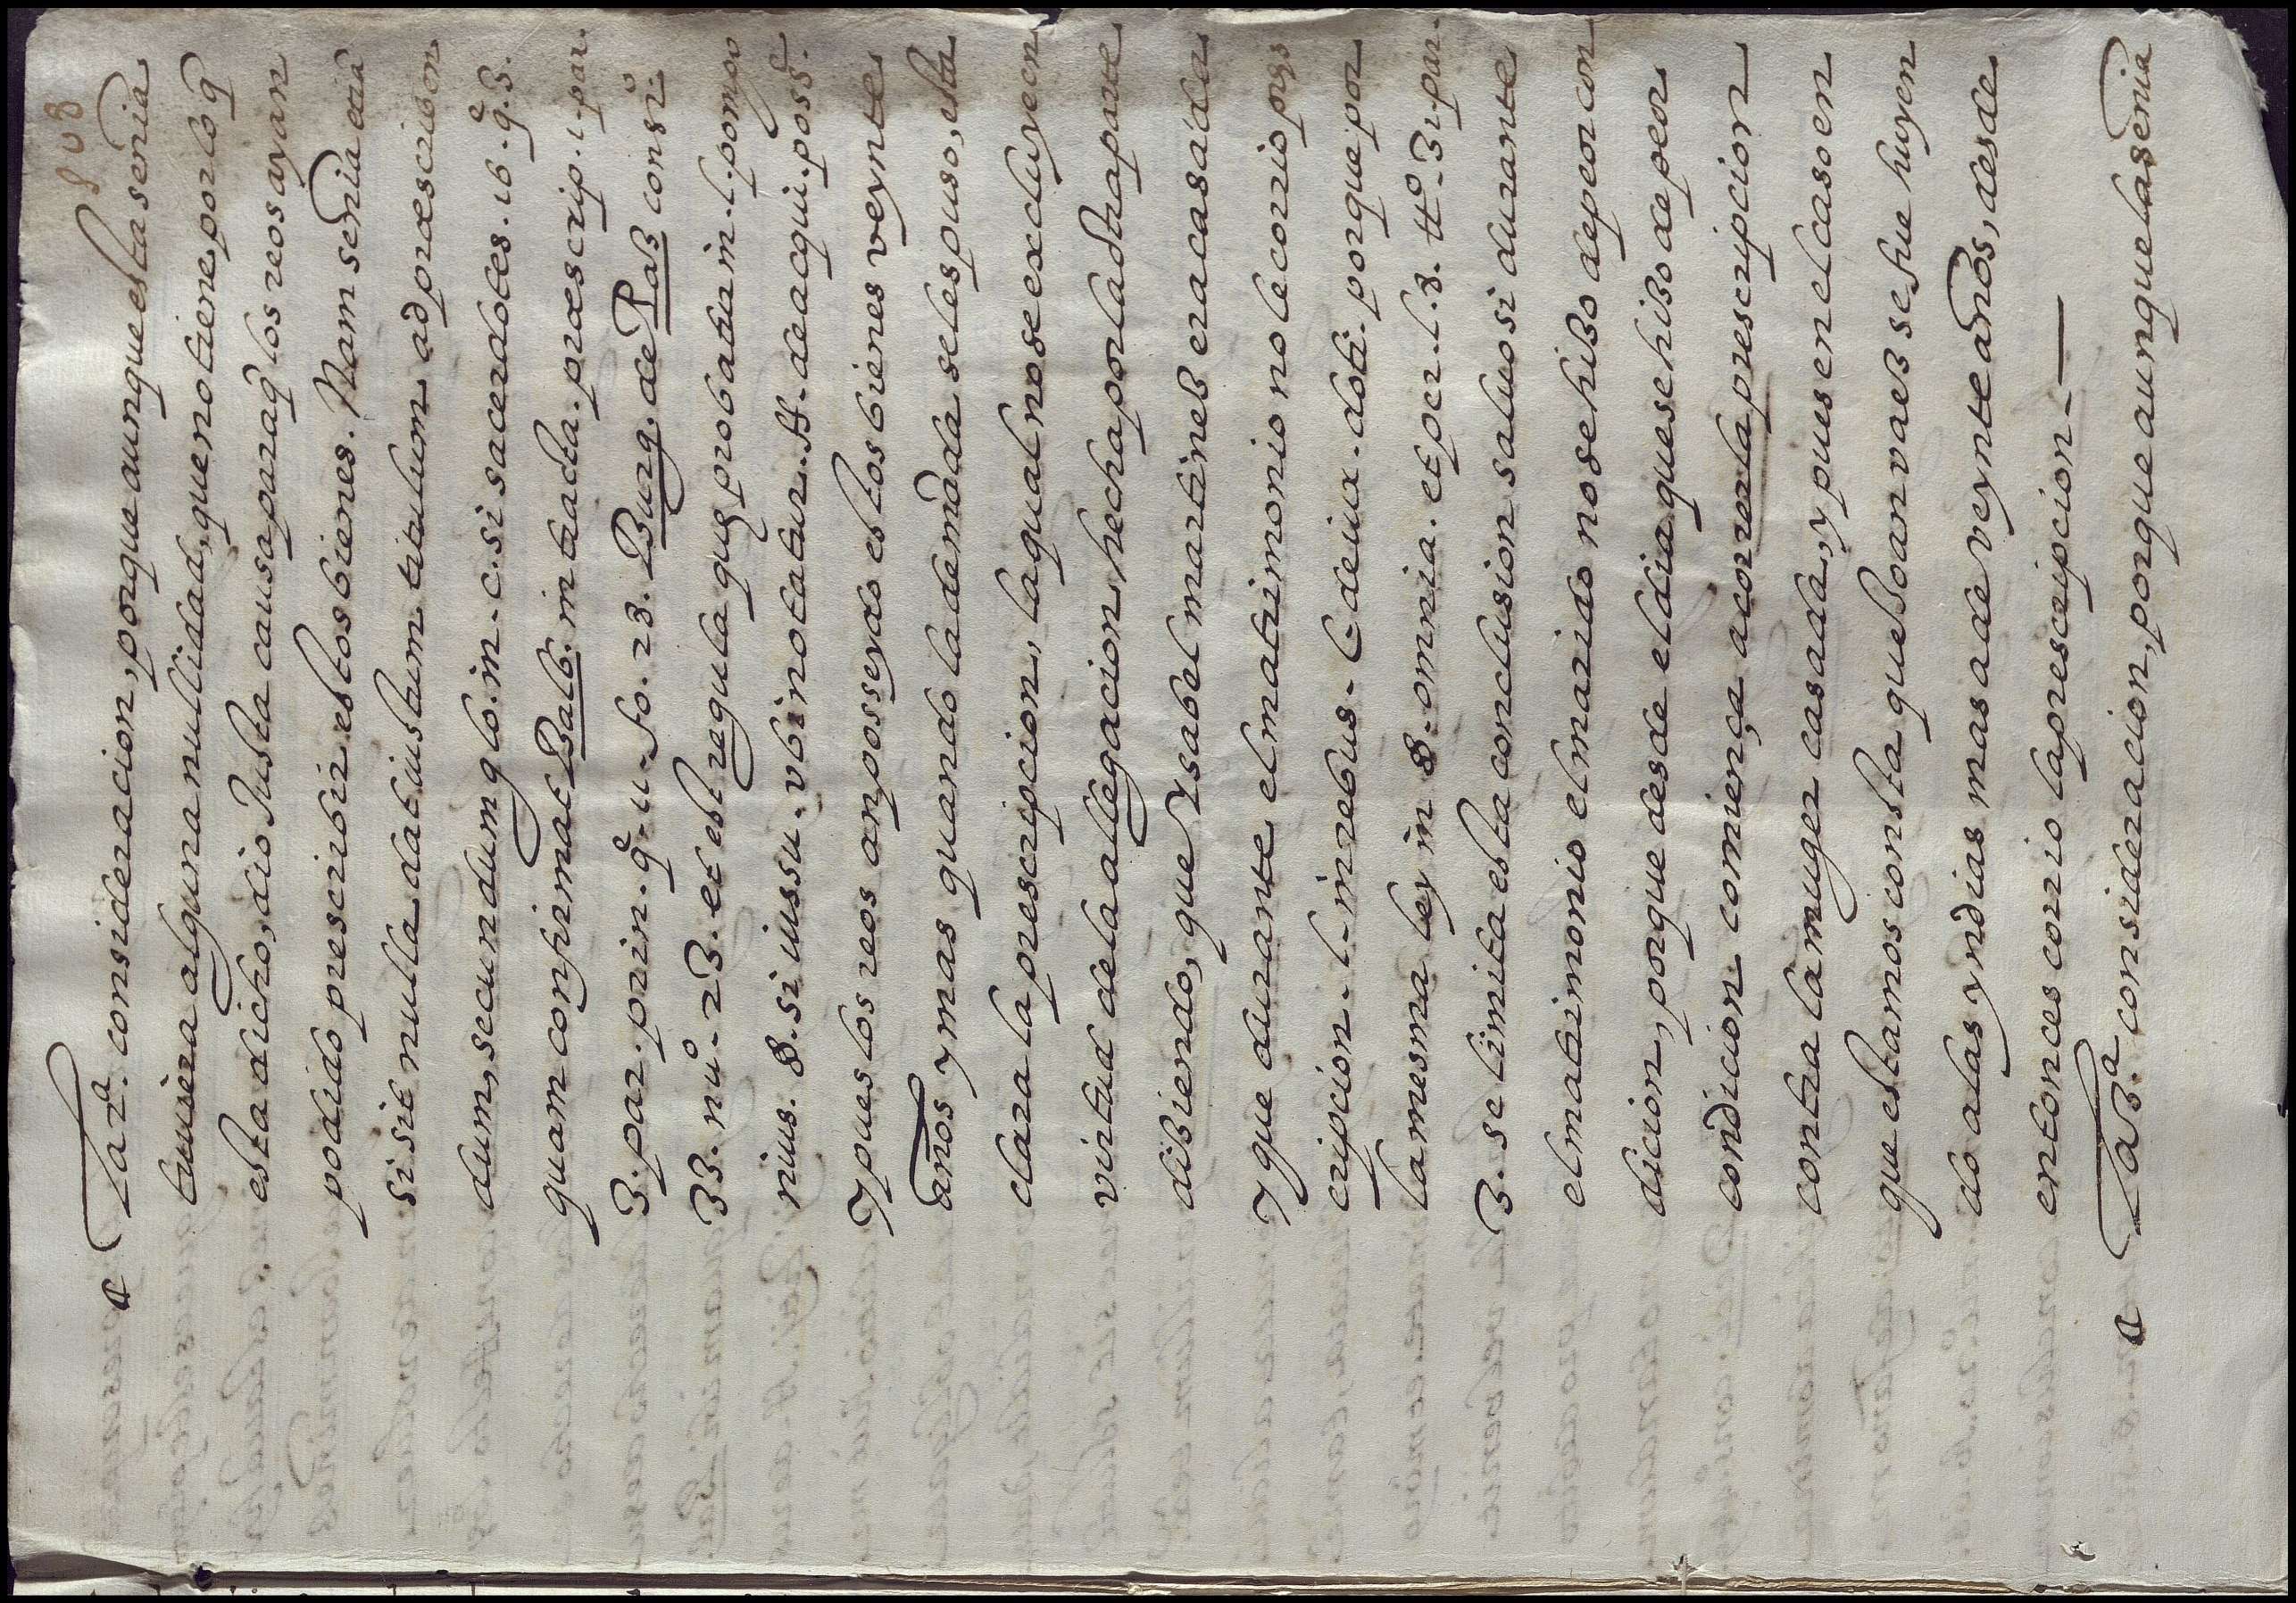 808
La 2ª. consideracion, porque aunque esta senia
tuuiera alguna nullidad, que no tiene, por lo q̃
esta dicho, dio Justa causa para q̃ los reos ayan
podido prescribir estos bienes. Nam senia etiã
si sit nulla, dat iustum titulum ad præscriben
dum, secundum glo. in. c. si sacerdotes. 16. q̃. 3.
quam confirmat Balb. in tracta. præscrip. 1. par.
3. par. prin. q̃. 11. fo. 23. Burg. de Paß consi.º
33. nuº. 23. et est regula quæ probatur in. l. pompo
nius. §. si iussu. vbi notatur. ff. de acqui. possẽ.
Y pues los reos an posseydo estos bienes veynte
años y mas quando la demãda se les puso, esta
clara la prescripcion, la qual no se excluye en
virtud de la allegacion hecha por la dtra parte
diziendo, que Ysabel martinez era casada
Y que durante el matrimonio no le corrio pręs
cripcion. l. in rebus. C. de iur. doti. porque por
la mesma ley in §. omnia. et per. l. 8. ttº. 31. par.
3. se limita esta conclusion saluo si durante
el matrimonio el marido no se hizo de peor con
dicion, porque desde el dia que se hizo de peor
condicion comiença a correr la prescripcion
contra la muger casada, y pues en el caso en
que estamos consta que Boan vaez se fue huyen
do a las yndias mas a de veynte años, desde
entonces corrio la prescripcion —
La 3ª. consideracion, porque aunque la senia